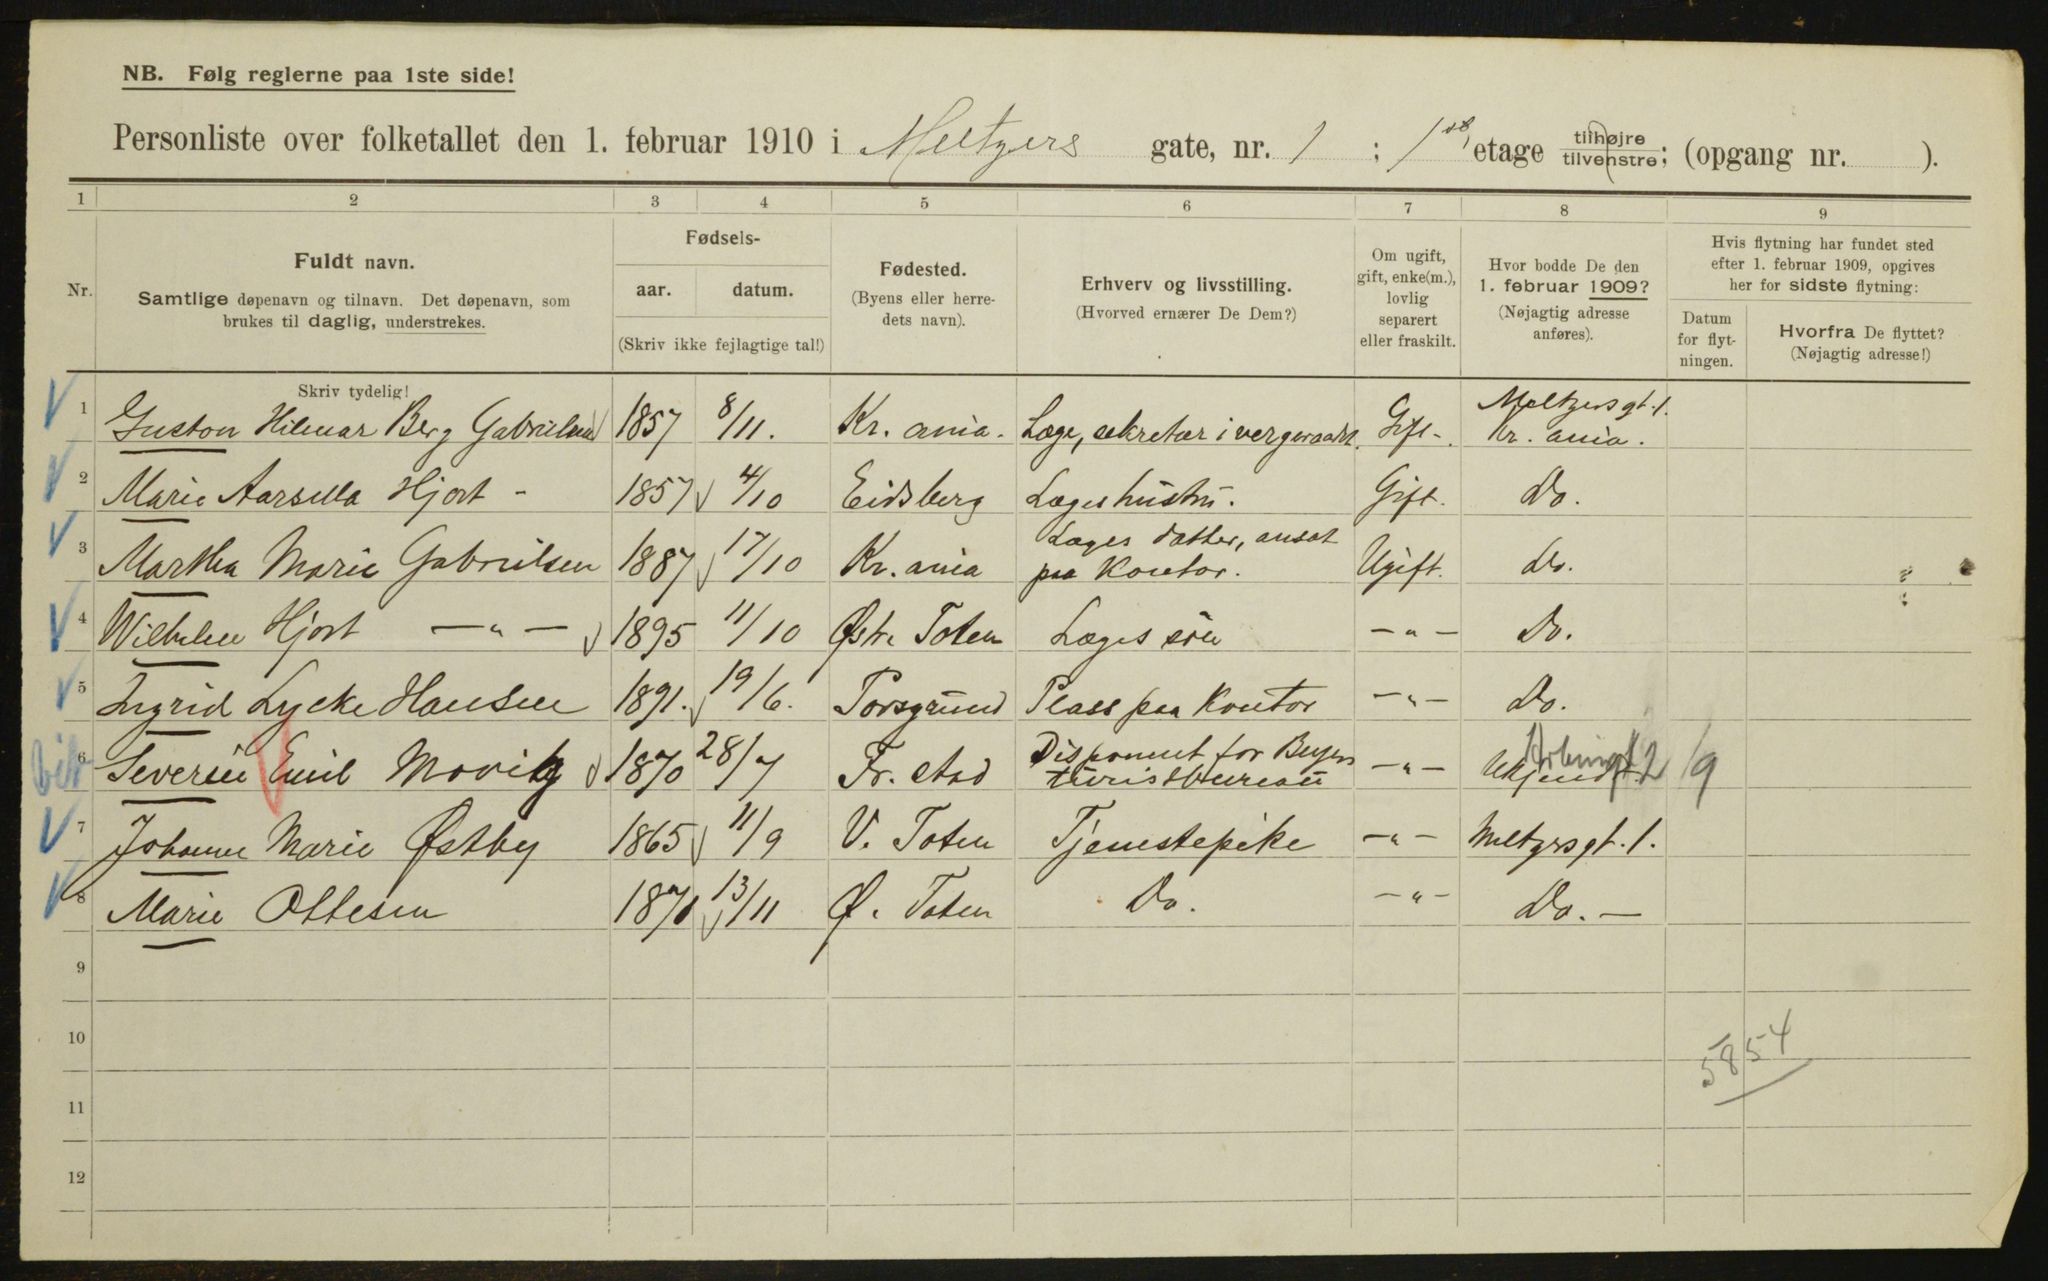 NB. Følg reglerne paa 1ste side!
Personliste over folketallet den 1. februar 1910 i Meltzers gate, nr. 1 ; 1ste etage tilhøjre tilvenstre; (opgang nr. ).
1 2 3 4 5 6 7 8 9
Nr.
Fuldt navn.
Samtlige døpenavn og tilnavn. Det døpenavn, som
brukes til daglig, understrekes.
Skriv tydelig!
Fødsels-
aar. datum.
(Skriv ikke fejlagtige tal!)
Fødested.
(Byens eller herre-
dets navn).
Erhverv og livsstilling.
(Hvorved ernærer De Dem?)
Om ugift,
gift, enke(m.),
lovlig
separert
eller fraskilt.
Hvor bodde De den
1. februar 1909?
(Nøjagtig adresse
anføres).
Hvis flytning har fundet sted
efter 1. februar 1909, opgives
her for sidste flytning:
Datum
for flyt-
ningen.
Hvorfra De flyttet?
(Nøjagtig adresse!)
1 Gustav Hilmar Berg Gabrielsen 1857 8/11. Kr. ania. Læge, sekretær i vergeraadet. Gift. Meltzersgt. 1. Kr. ania.
2 Marie Aarsilla Hjort - 1857 4/10 Eidsberg Læges hustru. Gift. Do.
3 Martha Marie Gabrielsen 1887 17/10 Kr. ania Læges datter, ansat paa Kontor. Ugift. Do.
4 Wilhelm Hjort —"— 1895 11/10 Østre Toten Læges søn —"— Do.
5 Ingrid Lycke Hansen 1891. 19/6. Porsgrund Plass paa Kontor —"— Do.
6 Severin Emil Movig 1870 28/7 Fr. stad Disponent for Beyers turistbureau —"— Ukjendt 2/9
7 Johanne Marie Østby 1865 11/9 V. Toten Tjenestepike —"— Meltzersgt. 1.
8 Marie Ottesen 1870 13/11 Ø. Toten Do. —"— Do. —
9
10
5854
11
12